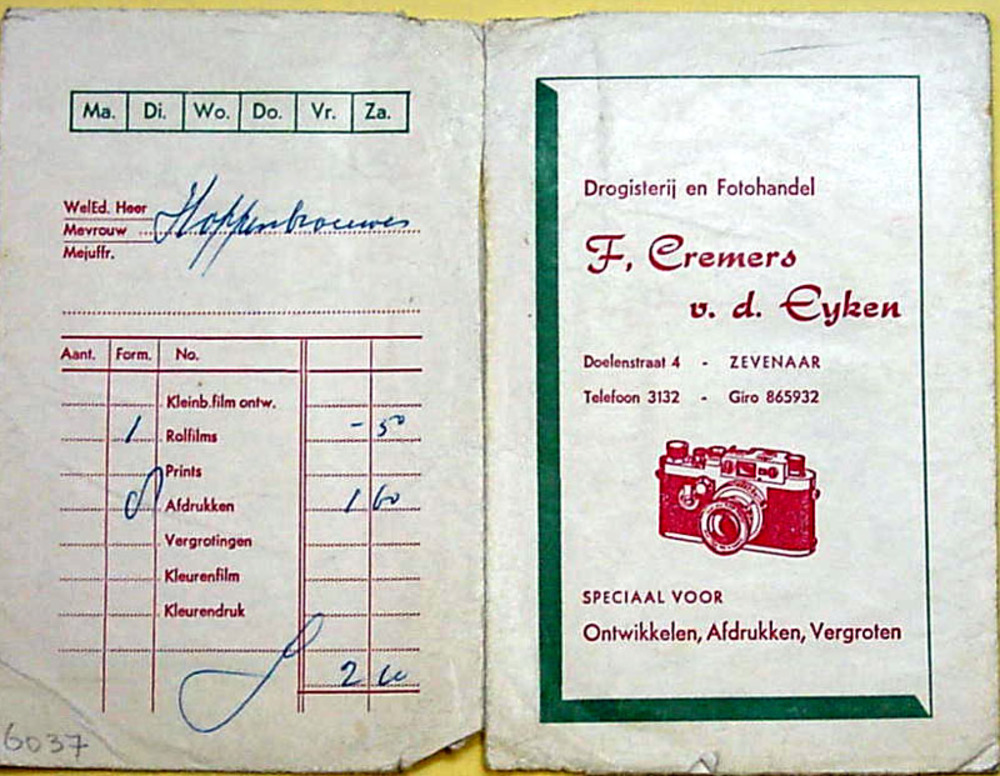 Ma. Di. Wo. Do. Vr. Za.
WelEd. Heer
Mevrouw Hoppenbrouwers
Mejuffr.
Aant. Form. No.
Kleinb.film ontw.
1 Rolfilms - 50
Prints
8 Afdrukken 1 60
Vergrotingen
Kleurenfilm
Kleurendruk
2
6037
Drogisterij en Fotohandel
F. Cremers
v. d. Eyken
Doelenstraat 4 - ZEVENAAR
Telefoon 3132 - Giro 865932
SPECIAAL VOOR
Ontwikkelen, Afdrukken, Vergroten